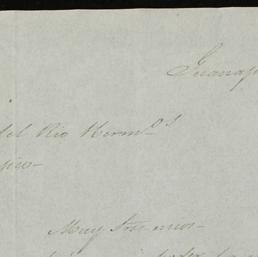 Guanaj
del Rio Herm.os
pico-
Muy Sres mios-